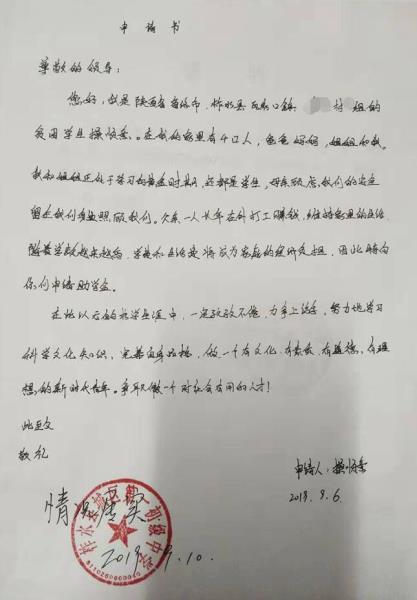 申请书
尊敬的领导：
您好，我是陕西省商洛市，柞水县 瓦房口镇 村 组的
贫困学生操 。在我的家里有4口人，爸爸妈妈，姐姐和我。
我和姐姐正处于学习的黄金时期，还都是学生，母亲 ，我们的安全
留在我们身边照顾我们。父亲一人长年在外打工赚钱，维持家里的生活
随着学段越来越高，学费和生活费将成为家庭的经济负担，因此特向
你们申请助学金。
在此以后的求学生涯中，一定孜孜不倦，力争上游，努力地学习
科学文化知识，完善自身品格，做一个有文化、有素质、有道德、有理
想的新时代青年。争取做一个对社会有用的人才！
此致
敬礼
申请人：操
2019.9.6
情况属实
柞水县 初级中学
2019.9.10.